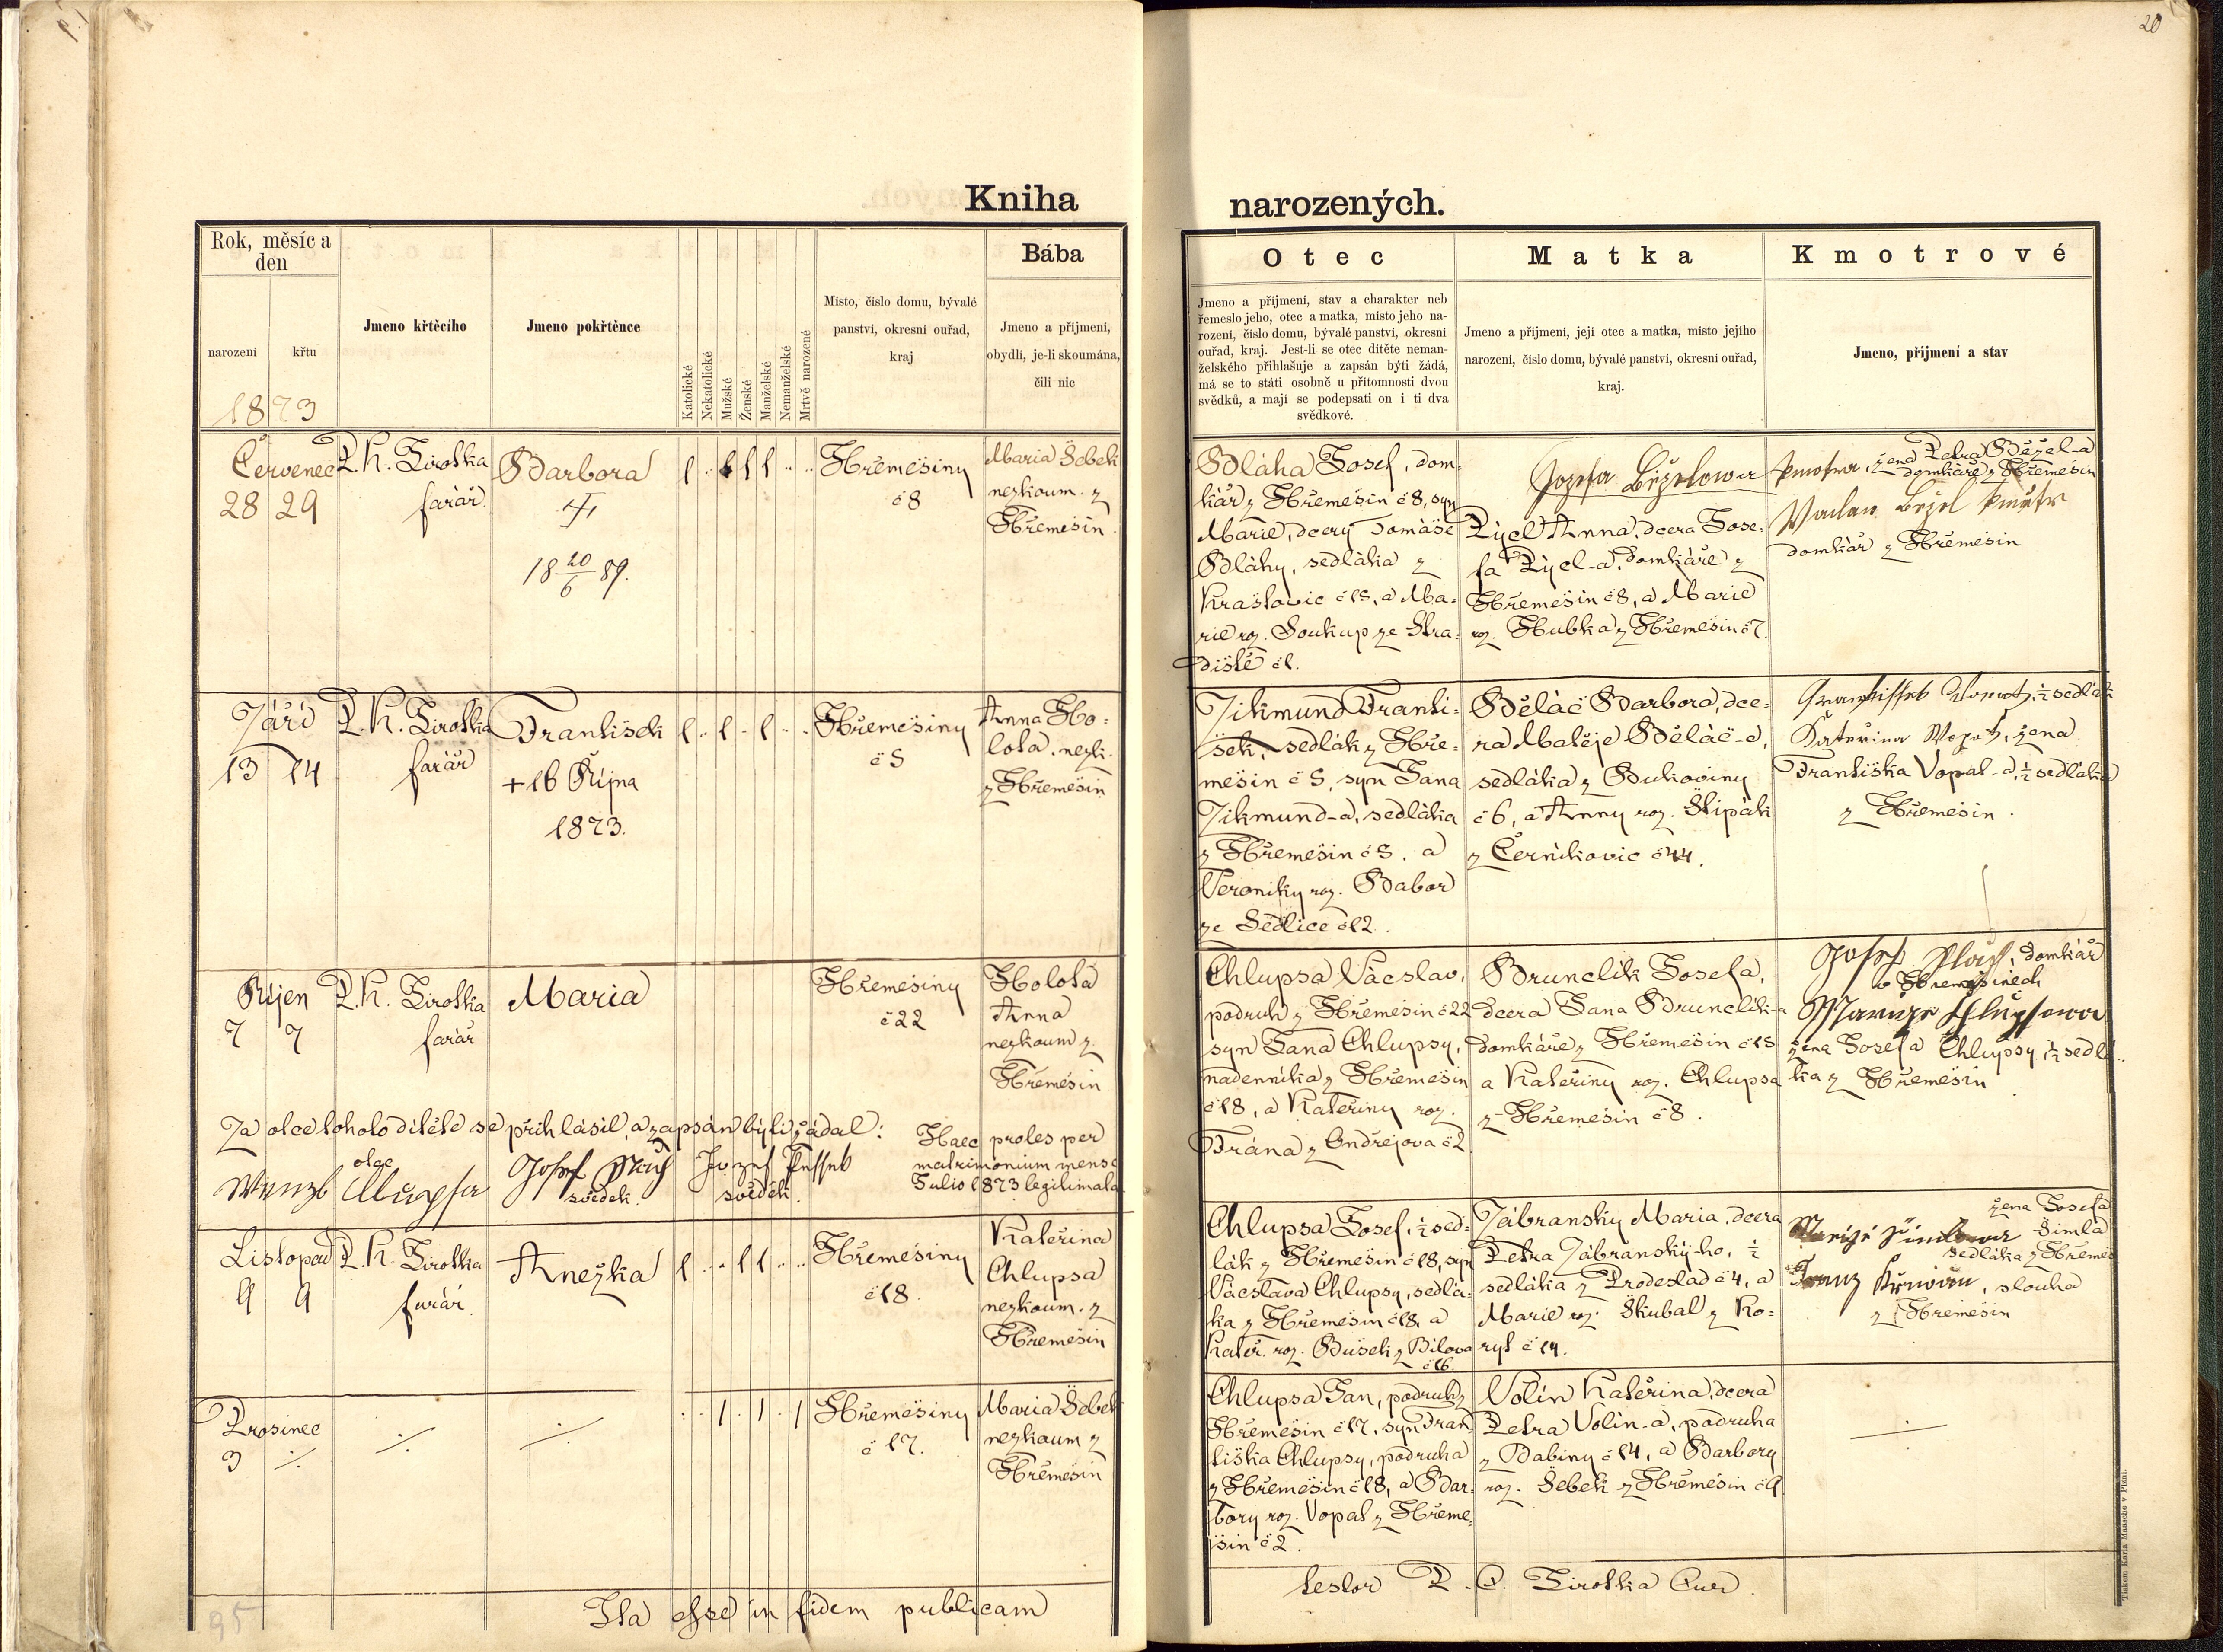 20
Kniha
narozených.
Rok, měsíc a
den
narození
křtu
1873
Jmeno křtěcího
Jmeno pokřtěnce
Katolické
Nekatolické
Mužské
Ženské
Manželské
Nemanželské
Mrtvě narozené
Místo, číslo domu, bývalé
panství, okresní ouřad,
kraj
Bába
Jmeno a příjmení,
obydlí, je-li skoumána,
čili nic
Otec
Jmeno a příjmení, stav a charakter neb
řemeslo jeho, otec a matka, místo jeho na-
rození, číslo domu, bývalé panství, okresní
ouřad, kraj. Jest-li se otec dítěte neman-
želského přihlašuje a zapsán býti žádá,
má se to státi osobně u přítomnosti dvou
svědků, a mají se podepsati on i ti dva
svědkové.
Matka
Jmeno a příjmení, její otec a matka, místo jejího
narození, číslo domu, bývalé panství, okresní ouřad,
kraj.
Kmotrové
Jmeno, příjmení a stav
Červenec
28 29
P. K. Sirotka
farář
Barbora
18 20/6 89.
1 .. 1 1 1 .. ..
Hřemešiny
č 8
Maria Šebek
nezkoum. z
Hřemešin
Bláha Josef, dom-
kář z Hřemešin č 8, syn
Marie, dcery Tomáše
Bláhy, sedláka z
Kraštovic č 15, a Ma-
rie roz. Soukup ze Stra-
diště č 1.
Pýcl Anna, dcera Jose-
fa Pýcl-a, domkáře z
Hřemešin č 8, a Marie
roz. Hubka z Hřemešin č 7.
Jozefa Běželowa kmotra, žena Petra Běžel-a
domkáře z Hřemešin
Vaclav Bežel kmotr
domkář z Hřemešin
Září
13 14
P. K. Sirotka
farář
František
+ 16 Října
1873.
1 .. 1 . 1 .. ..
Hřemešiny
č 5
Anna Ho-
lota, nezk.
z Hřemešin
Zikmund Franti-
šek, sedlák z Hře-
mešin č 5, syn Jana
Zikmund-a, sedláka
z Hřemešin č 5. a
Veroniky roz. Babor
ze Sedlice č 12.
Běláč Barbora, dce-
ra Matěje Běláč-a,
sedláka z Bukoviny
č 6, a Anny roz. Štipák
z Černíkovic č 44.
½ sedlák
Kateřina žena
Františka Vopat-a, ½ sedláka
z Hřemešin.
Říjen
7 7
P. K. Sirotka
farář
Maria
Hřemešiny
č 22
Holota
Anna
nezkoum z
Hřemešin
Chlupsa Václav,
podruh z Hřemešin č 22
syn Jana Chlupsy,
nádenníka z Hřemešin
č 18, a Kateřiny roz.
Vrána z Ondřejova č 2
Brunclík Josefa,
dcera Jana Brunclík-a
domkáře z Hřemešin č 15
a Kateřiny roz. Chlupsa
z Hřemešin č 8.
Josef domkář
v Hřemešinech
žena Josefa Chlupsy, ½ sedlá-
ka z Hřemešin
Za otce tohoto dítěte se přihlásil, a zapsán býti žádal:
otec
Josef
svědek
Jozef
svědek.
Haec proles per
matrimonium mense
Julio 1873 legitimata
Listopad
9 9
P. K. Sirotka
farář.
Anežka
1 .. 1 1 .. ..
Hřemešiny
č 18.
Kateřina
Chlupsa
nezkoum. z
Hřemešin
Chlupsa Josef, ½ sed-
lák z Hřemešin č 18, syn
Václava Chlupsy, sedlá-
ka z Hřemešin č 18, a
Kateř. roz. Bušek z Bílova
č 16
Zábranský Maria, dcera
Petra Zábranský-ho, ½
sedláka z Prodeslad č 4, a
Marie roz. Škubal z Ko-
ryt č 14.
žena Josefa
Šimla
sedláka z Hřemeš
Franz, slouha
z Hřemešin
Prosinec
3 ·/·
·/·
·/·
: . 1 . 1 . 1
Hřemešiny
č 17.
Maria Šebek
nezkoum z
Hřemešin
Chlupsa Jan, podruh z
Hřemešin č 17, syn Fran-
tiška Chlupsy, podruha
z Hřemešin č 18, a Bar-
bory roz. Vopat z Hřeme-
šin č 2.
Volín Kateřina, dcera
Petra Volín-a, podruha
z Babiny č 14, a Barbory
roz. Šebek z Hřemešin č 9
·/·
95
Ita esse in fidem publicam
testor P. C. Sirotka Cur.
Tiskem Karla Maasche v Plzni.